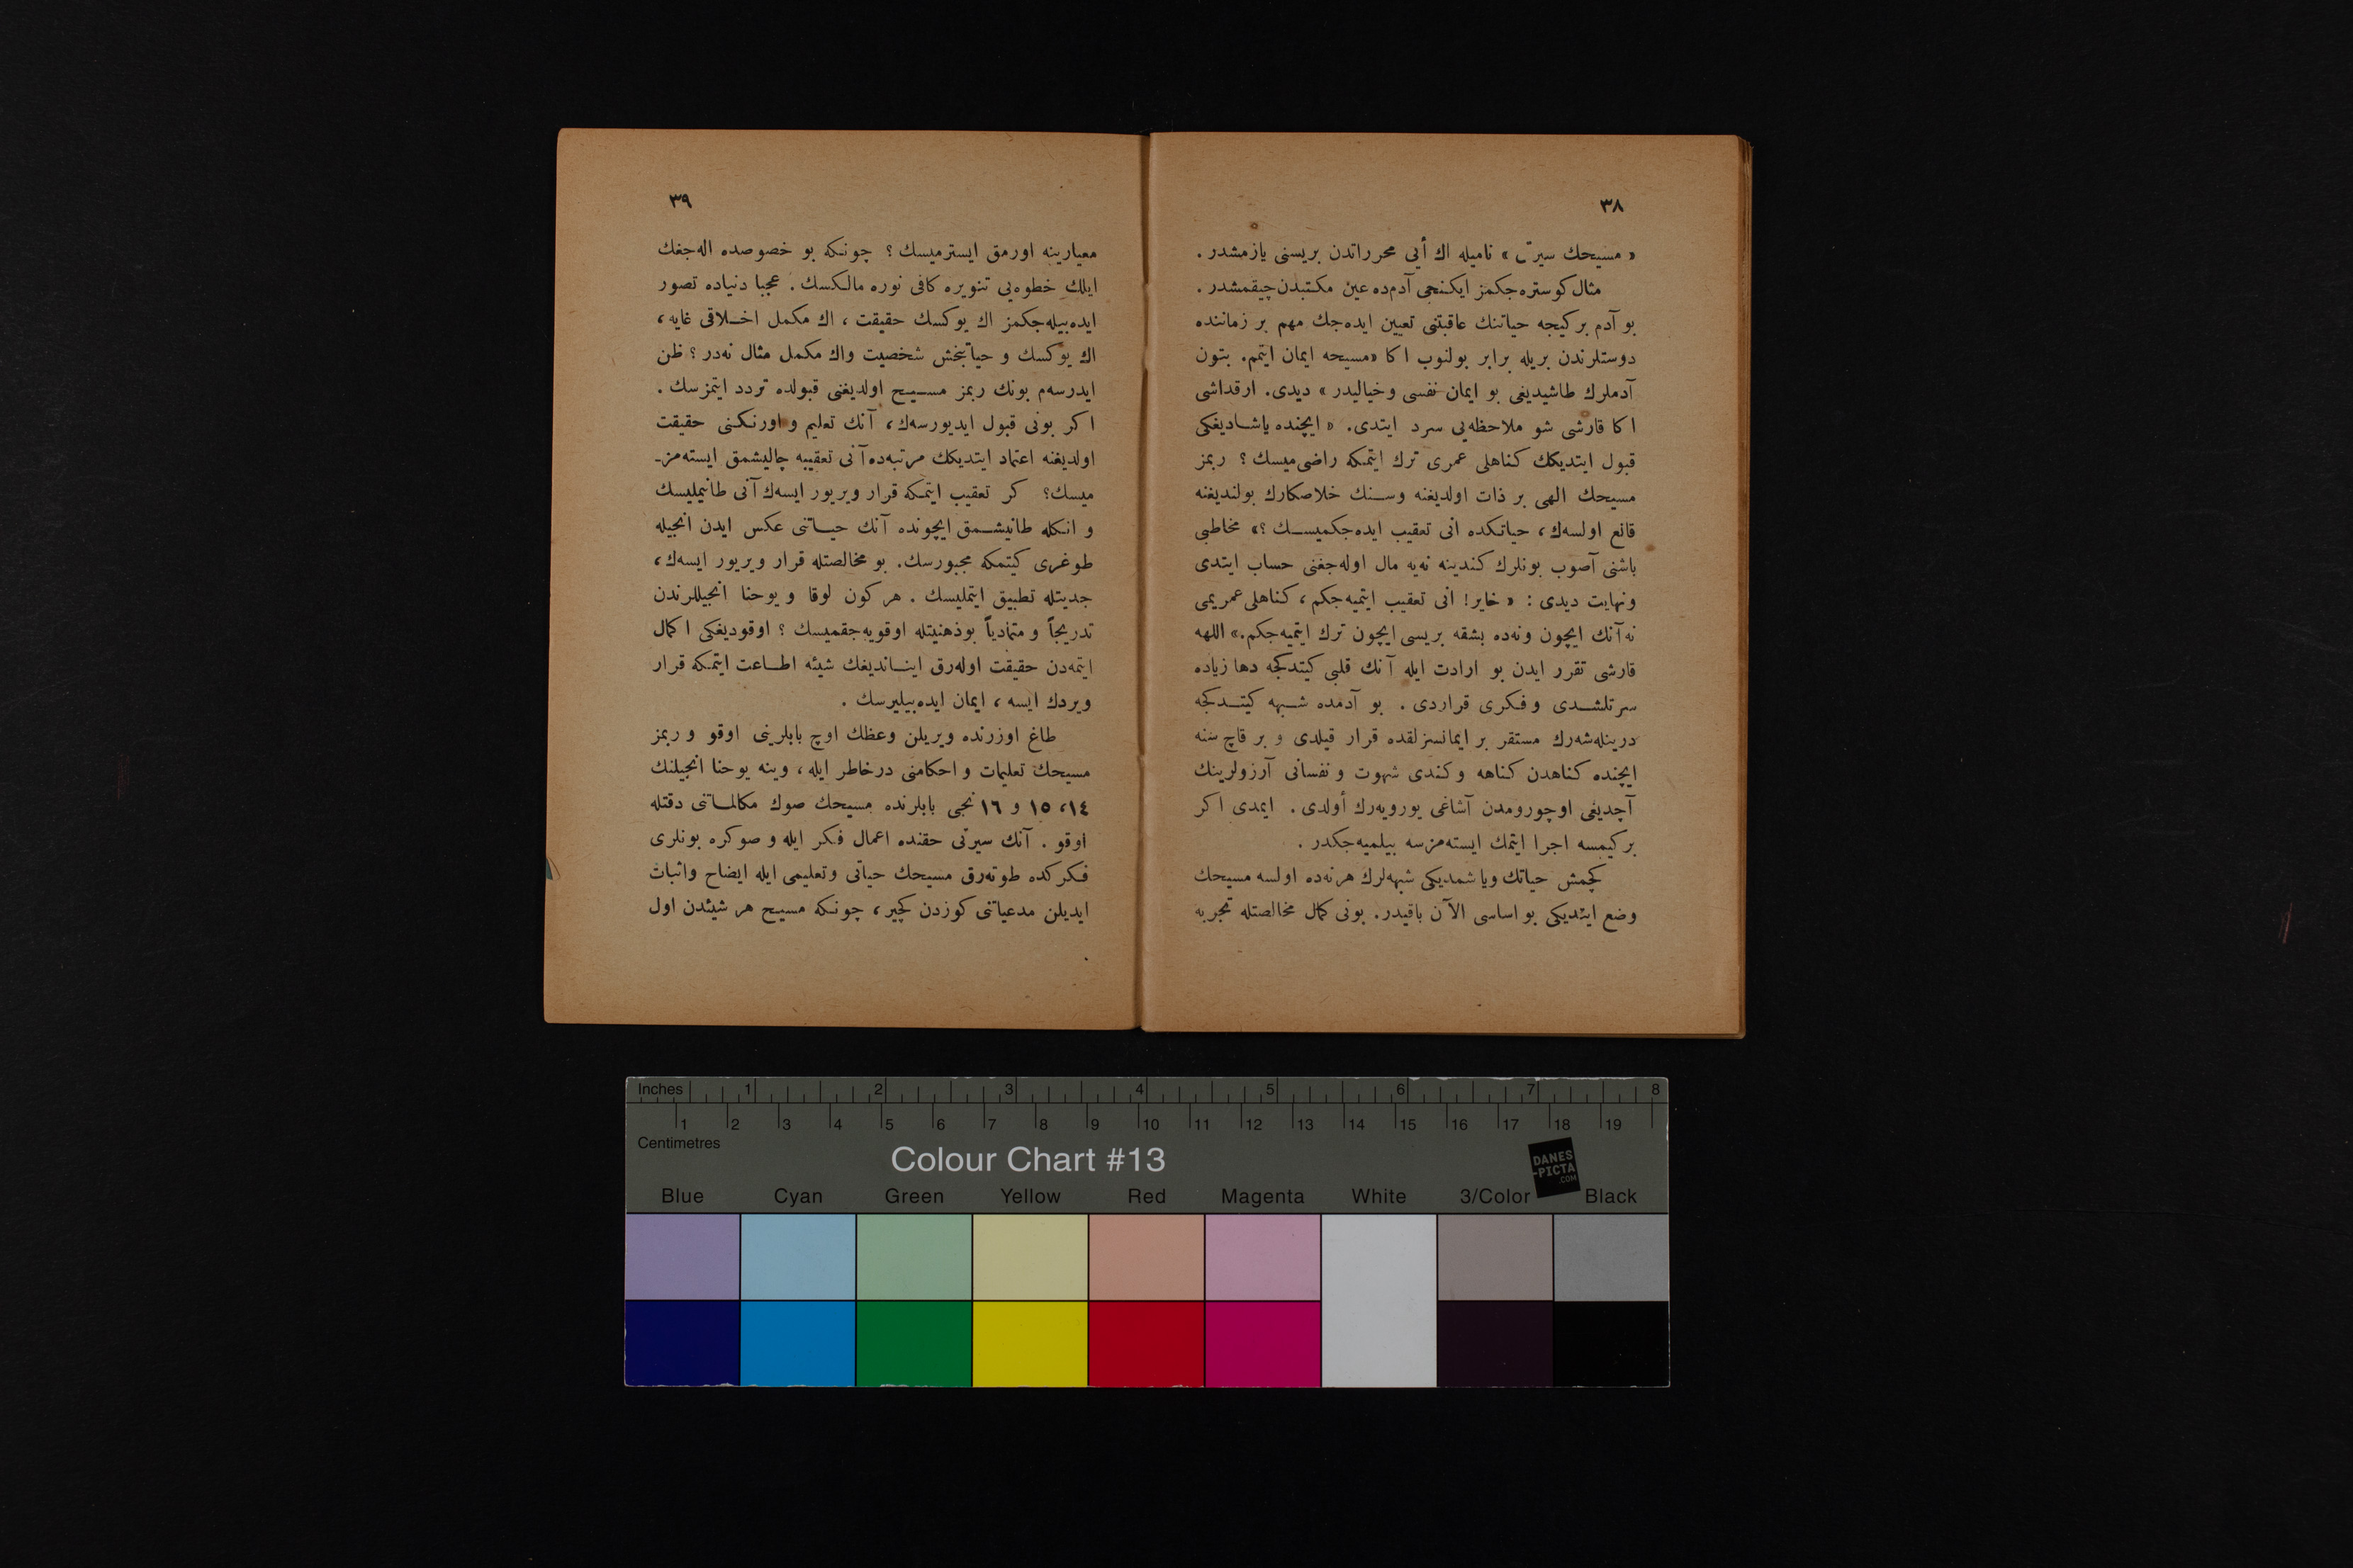 ٣٨
« مسيحك سيرتى » ناميله اك أيى محرراتدن بريسنى يازمشدر .
مثال كوستره‌جكمز ايكنجى آدم‌ده عين مكتبدن چيقمشدر .
بو آدم بر كيجه حياتنك عاقبتنى تعيين ايده‌جك مهم بر زماننده
دوستلرندن بريله برابر بولنوب اكا «مسيحه ايمان ايتم. بتون
آدملرك طاشيديغى بو ايمان نفسى و خياليدر » ديدى. ارقداشى
اكا قارشى شو ملاحظه‌يى سرد ايتدى. « ايچنده ياشاديغكى
قبول ايتديكك كناهلى عمرى ترك ايتمكه راضى‌ميسك ؟ ربمز
مسيحك الهى بر ذات اولديغنه وسنك خلاصكارك بولنديغنه
قانع اولسه‌ك ، حياتكده انى تعقيب ايده‌جكميسك ؟» مخاطبى
باشنى آصوب بونلرك كندينه نه‌يه مال اوله‌جغنى حساب ايتدى
ونهايت ديدى : « خاير! انى تعقيب ايتميه‌جكم ، كناهلى عمريمى
نه آنك ايچون ونه‌ده بشقه بريسى ايچون ترك ايتميه‌جكم.» اللهه
قارشى تقرر ايدن بو ارادت ايله آنك قلبى كيتدكجه دها زياده
سرتلشدى و فكرى قراردى . بو آدمده شبهه كيتدكجه
درينله‌شه‌رك مستقر بر ايمانسزلقده قرار قيلدى و بر قاچ سنه
ايچنده كناهدن كناهه وكندى شهوت و نفسانى آرزولرينك
آچديغى اوچورومدن آشاغى يورويه‌رك أولدى . ايمدى اكر
بر كيمسه اجرا ايتمك ايسته‌مزسه بيلميه‌جكدر .
كچمش حياتك ويا شمديكى شبهه‌لرك هرنه‌ده اولسه مسيحك
وضع ايتديكى بو اساسى الآن باقيدر. بونى كمال مخالصتله تجربه
٣٩
معيارينه اورمق ايسترميسك ؟ چونكه بو خصوصده اله‌جغك
ايلك خطوه‌يى تنويره كافى نوره مالكسك . عجبا دنياده تصور
ايده‌بيله‌جكمز اك يوكسك حقيقت ، اك مكمل اخلاقى غايه ،
اك يوكسك و حياتبخش شخصيت واك مكمل مثال نه‌در ؟ ظن
ايدرسه‌م بونك ربمز مسيح اولديغنى قبولده تردد ايتمزسك .
اكر بونى قبول ايديورسه‌ك ، آنك تعليم و اورنكنى حقيقت
اولديغنه اعتماد ايتديكك مرتبه‌ده آنى تعقيبه چاليشمق ايسته‌مز-
ميسك؟ كر تعقيب ايتمكه قرار ويريور ايسه‌ك آنى طانيمليسك
و انكله طانيشمق ايچونده آنك حياتنى عكس ايدن انجيله
طوغرى كيتمكه مجبورسك. بو مخالصتله قرار ويريور ايسه‌ك ،
جديتله تطبيق ايتمليسك . هر كون لوقا و يوحنا انجيللرندن
تدريجاً و متمادياً بوذهنيتله اوقويه‌جقميسك ؟ اوقوديغكى اكمال
ايتمه‌دن حقيقت اوله‌رق اينانديغك شيئه اطاعت ايتمكه قرار
ويردك ايسه ، ايمان ايده‌بيليرسك .
طاغ اوزرنده ويريلن وعظك اوچ بابلرينى اوقو و ربمز
مسيحك تعليمات و احكامنى درخاطر ايله ، وينه يوحنا انجيلنك
١٤، ١٥ و ١٦ نجى بابلرنده مسيحك صوك مكالماتنى دقتله
اوقو . آنك سيرتى حقنده اعمال فكر ايله و صوكره بونلرى
فكركده طوته‌رق مسيحك حياتى وتعليمى ايله ايضاح واثبات
ايديلن مدعياتنى كوزدن كچير ، چونكه مسيح هر شيئدن اول
Inches 1 2 3 4 5 6 7 8
1 2 3 4 5 6 7 8 9 10 11 12 13 14 15 16 17 18 19
Centimetres
Colour Chart #13
DANES
-PICTA
.COM
Blue Cyan Green Yellow Red Magenta White 3/Color Black